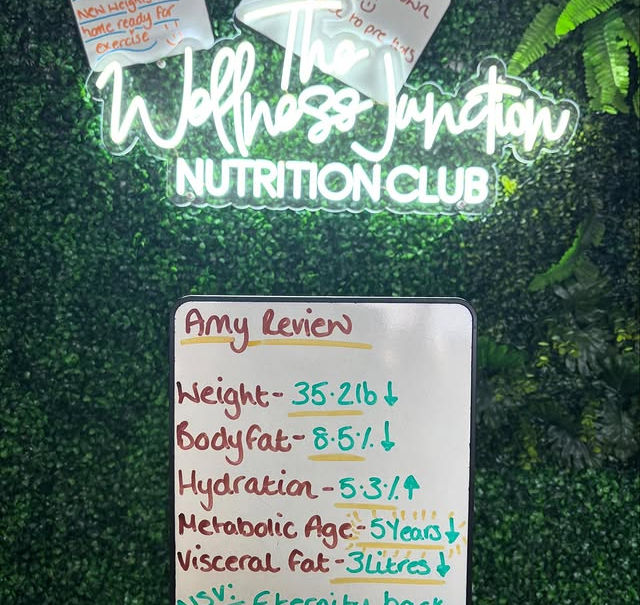 New Weights
home ready for
exercise
to pre
The
Wellness Junction
NUTRITION CLUB
Amy Review
Weight- 35.2lb↓
Bodyfat- 8.5%↓
Hydration - 5.3%↑
Metabolic Age - 5Years↓
Visceral Fat - 3Litres↓
NSV: Eternity back